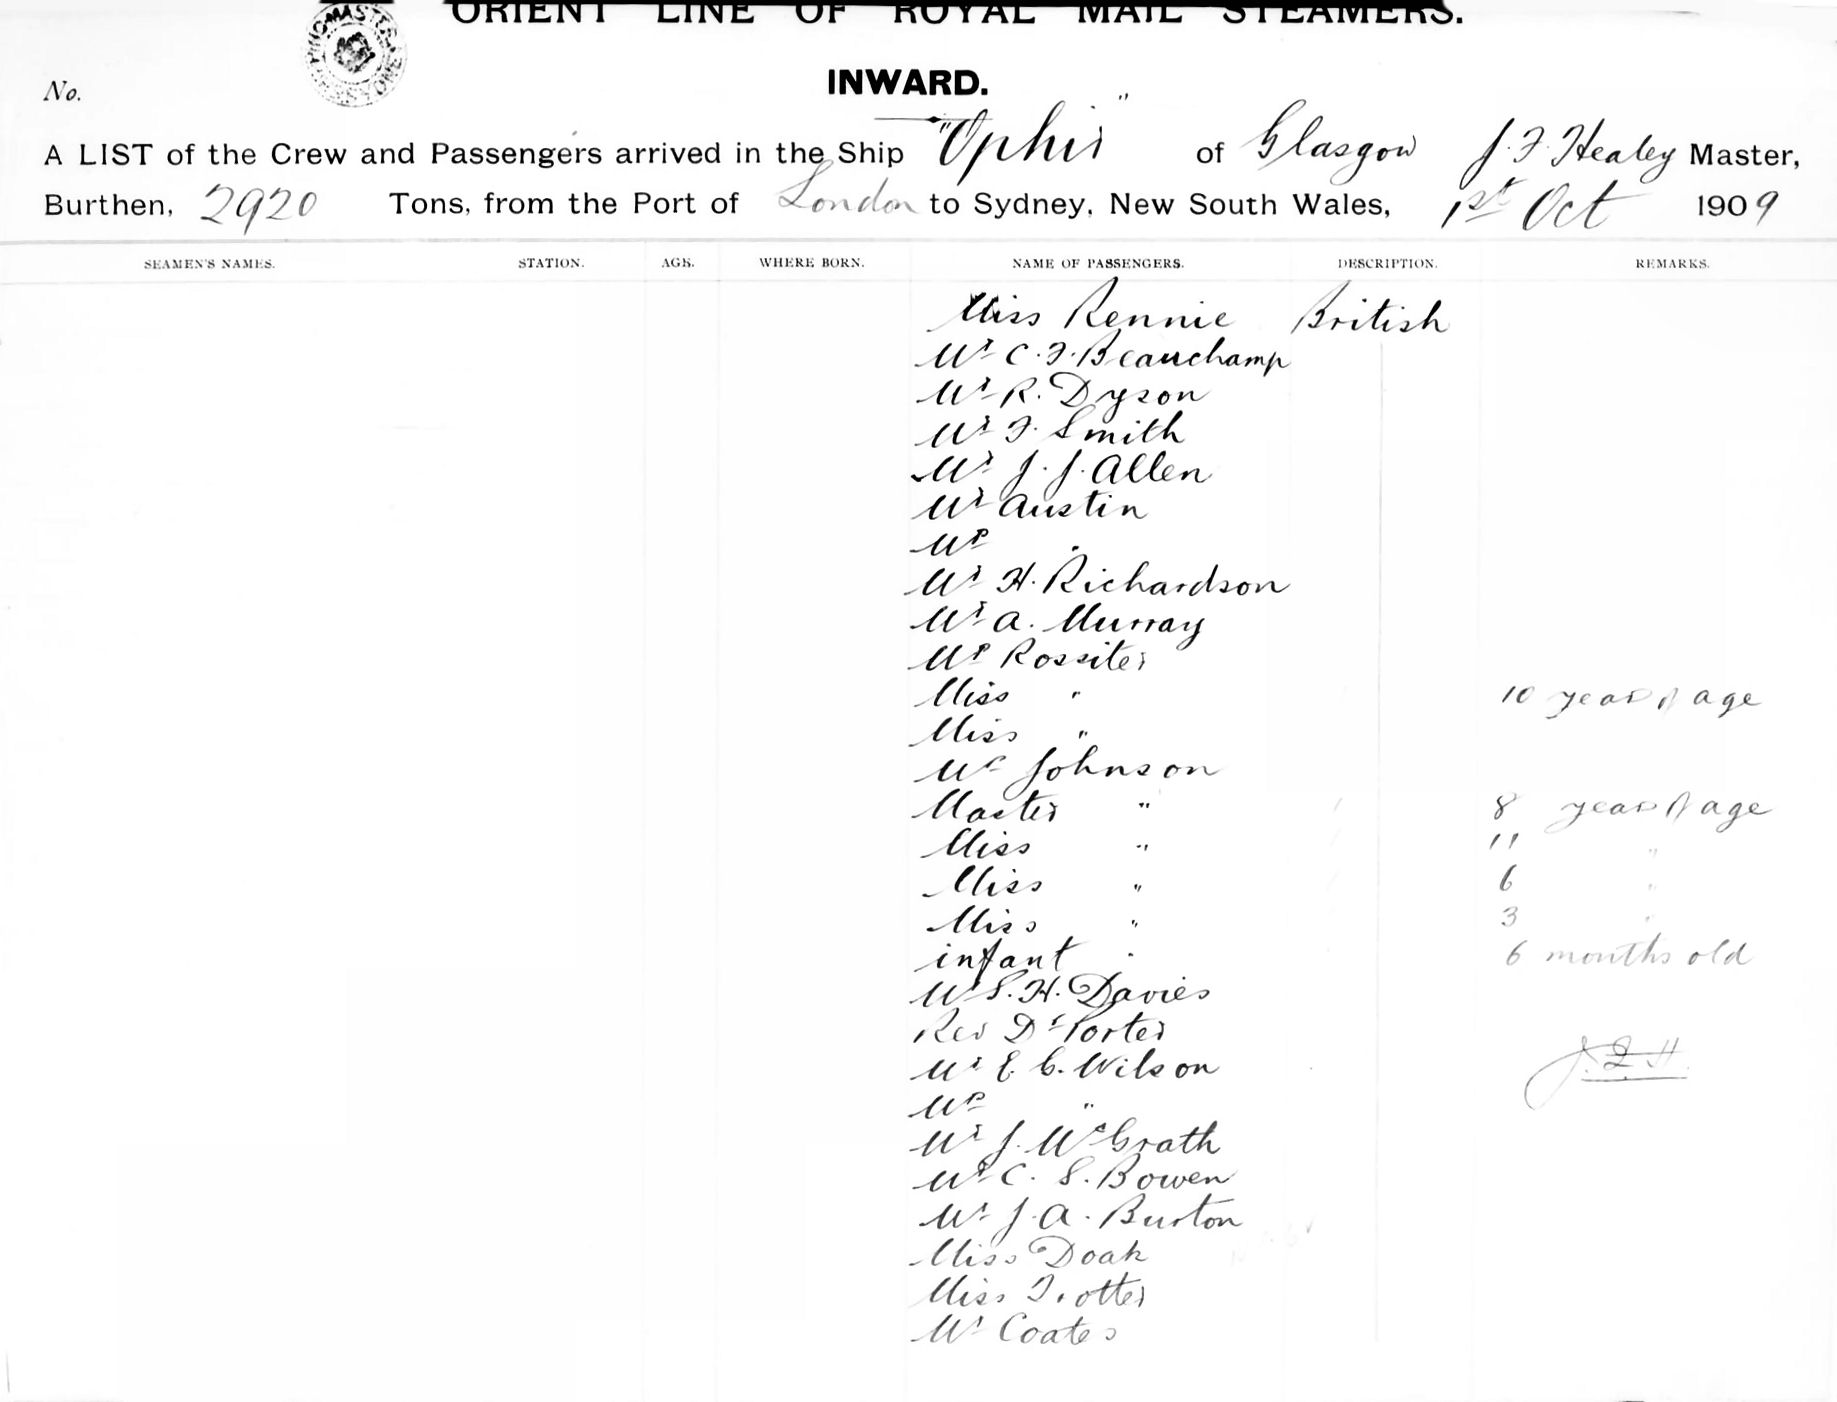 ORIENT LINE OF ROYAL MAIL STEAMERS.
INWARD.
No.
A LIST of the Crew and Passengers arrived in the Ship "Ophir" of Glasgow J. F. Healey Master,
Burthen, 2920 Tons, from the Port of London to Sydney, New South Wales, 1st Oct 1909
SEAMEN'S NAMES. STATION. AGE. WHERE BORN. NAME OF PASSENGERS. DESCRIPTION. REMARKS.
Miss Rennie British
Mr C. F. Beauchamp
Mr R. Dyson
Mr F. Smith
Mr J. J. Allen
Mr Austin
Mrs "
Mr H. Richardson
Mr A. Murray
Mrs Rossiter
Miss " 10 years of age
Miss "
Mrs Johnson
Master " 8 years of age
Miss " 11 "
Miss " 6 "
Miss " 3 "
infant " 6 months old
Mr S. H. Davies
Rev Dr Porter
Mr E. C. Wilson J. F. H
Mrs "
Mr J. McGrath
Mr C. S. Bowen
Mr J. A. Burton
Miss Doak
Miss Trotter
Mr Coates